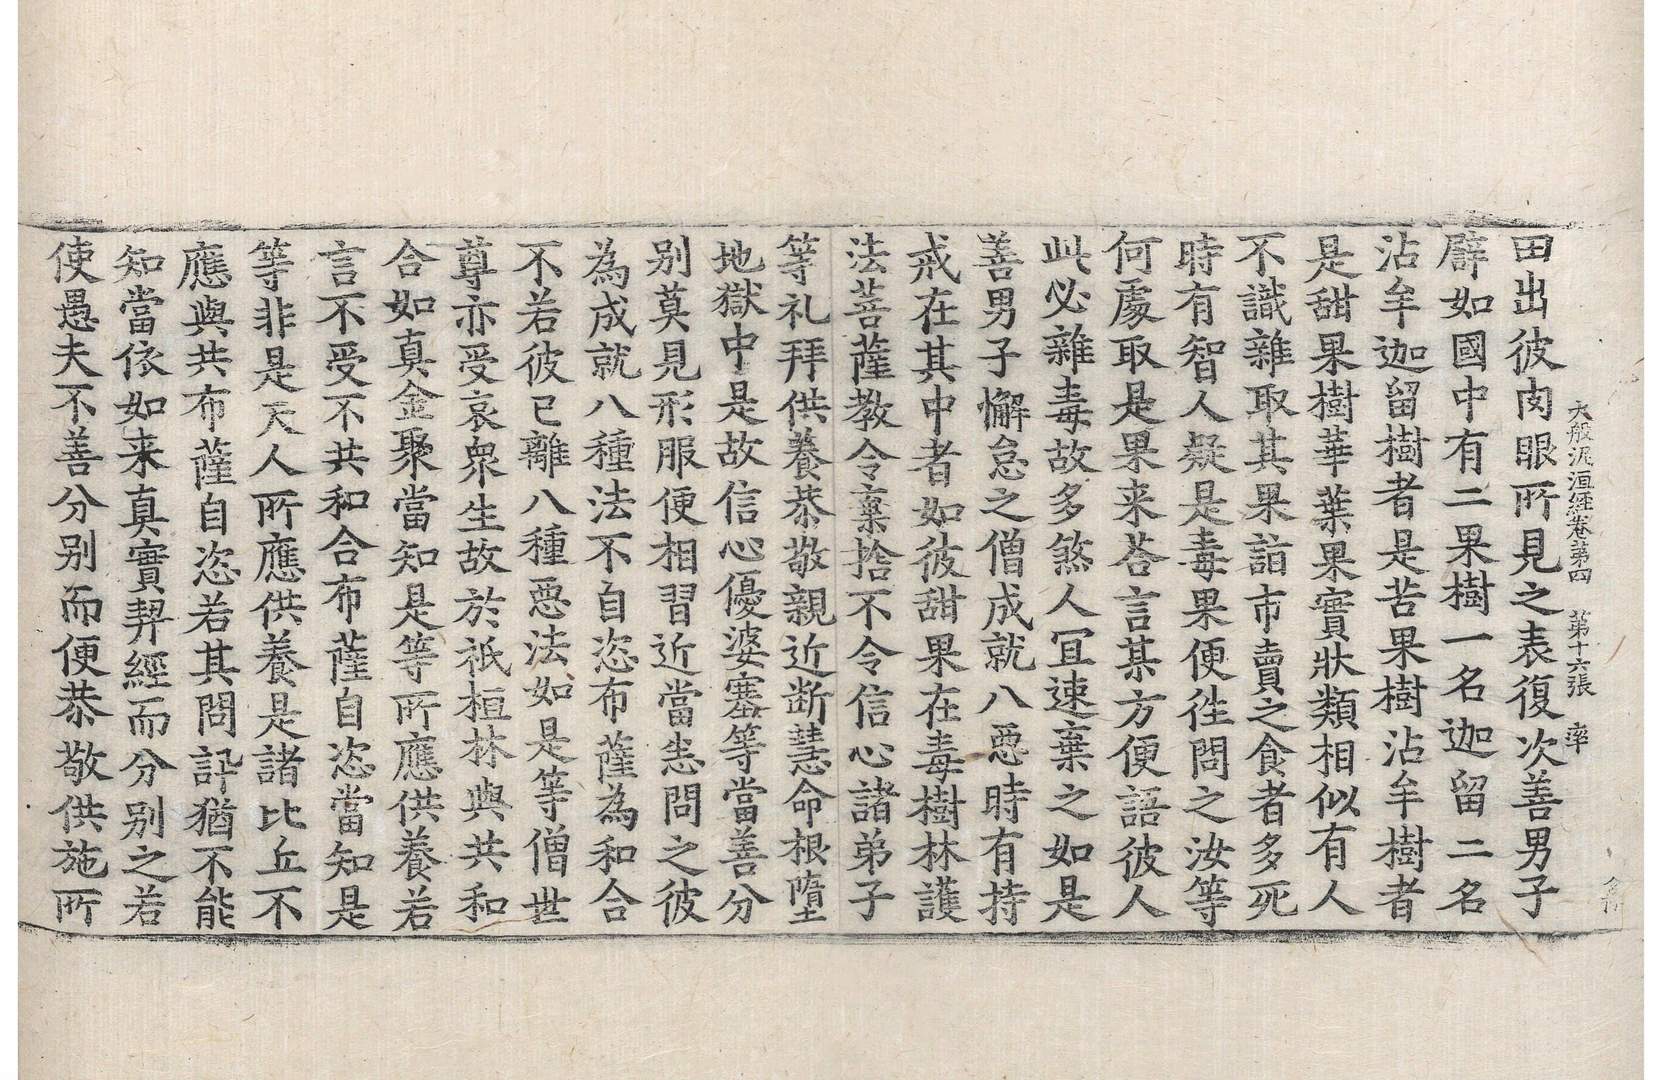 大般泥洹經卷第四　第十六張　率
田出彼肉眼所見之表復次善男子
譬如國中有二果樹一名迦留二名
沾牟迦留樹者是苦果樹沾牟樹者
是甜果樹華葉果實狀類相似有人
不識雜取其果詣市賣之食者多死
時有智人疑是毒果便徃問之汝等
何處取是果来荅言某方便語彼人
此必雜毒故多煞人冝速棄之如是
善男子懈怠之僧成就八惡時有持
戒在其中者如彼甜果在毒樹林護
法菩薩教令棄捨不令信心諸弟子
等礼拜供養恭敬親近断慧命根墮
地獄中是故信心優婆塞等當善分
别莫見形服便相習近當恙問之彼
為成就八種法不自恣布薩為和合
不若彼已離八種惡法如是等僧世
尊亦受哀衆生故於祇桓林與共和
合如真金聚當知是等所應供養若
言不受不共和合布薩自恣當知是
等非是天人所應供養是諸比丘不
應與共布薩自恣若其問訊猶不能
知當依如来真實契經而分别之若
使愚夫不善分别而便恭敬供施所